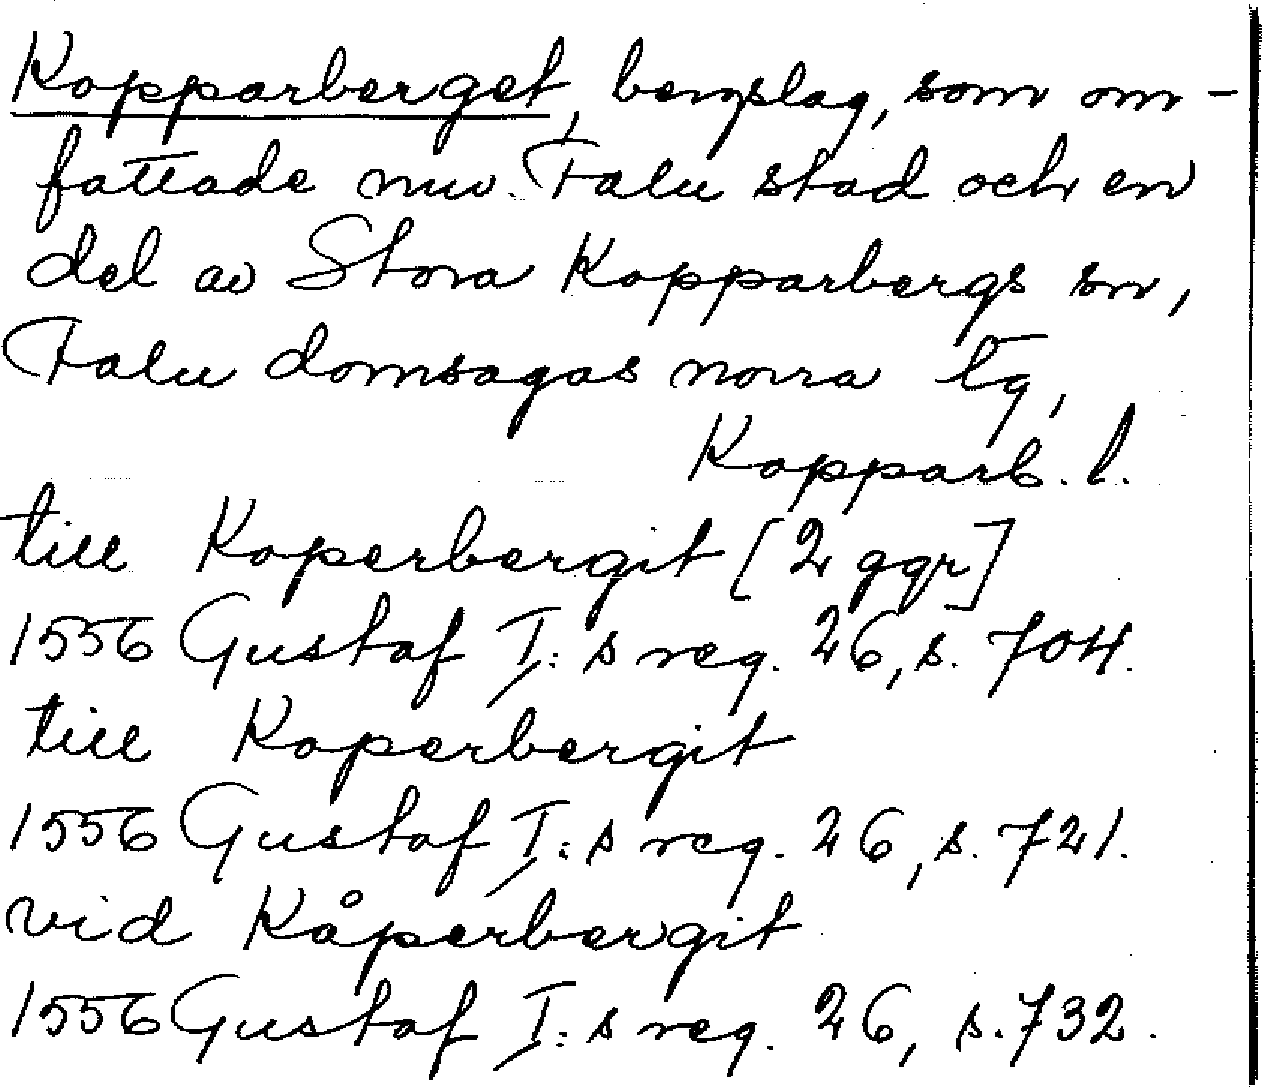 Kopparberget, bergslag, som om-
fattade nuv. Falu stad och en
del av Stora Kopparbergs sn,
Falu domsagas norra tg,
Kopparb. l.
till Koperbergit [2 ggr]
1556 Gustaf I:s reg. 26, s. 704.
till Koperbergit
1556 Gustaf I:s reg. 26, s. 721.
vid Kåperbergit
1556 Gustaf I:s reg. 26, s. 732.